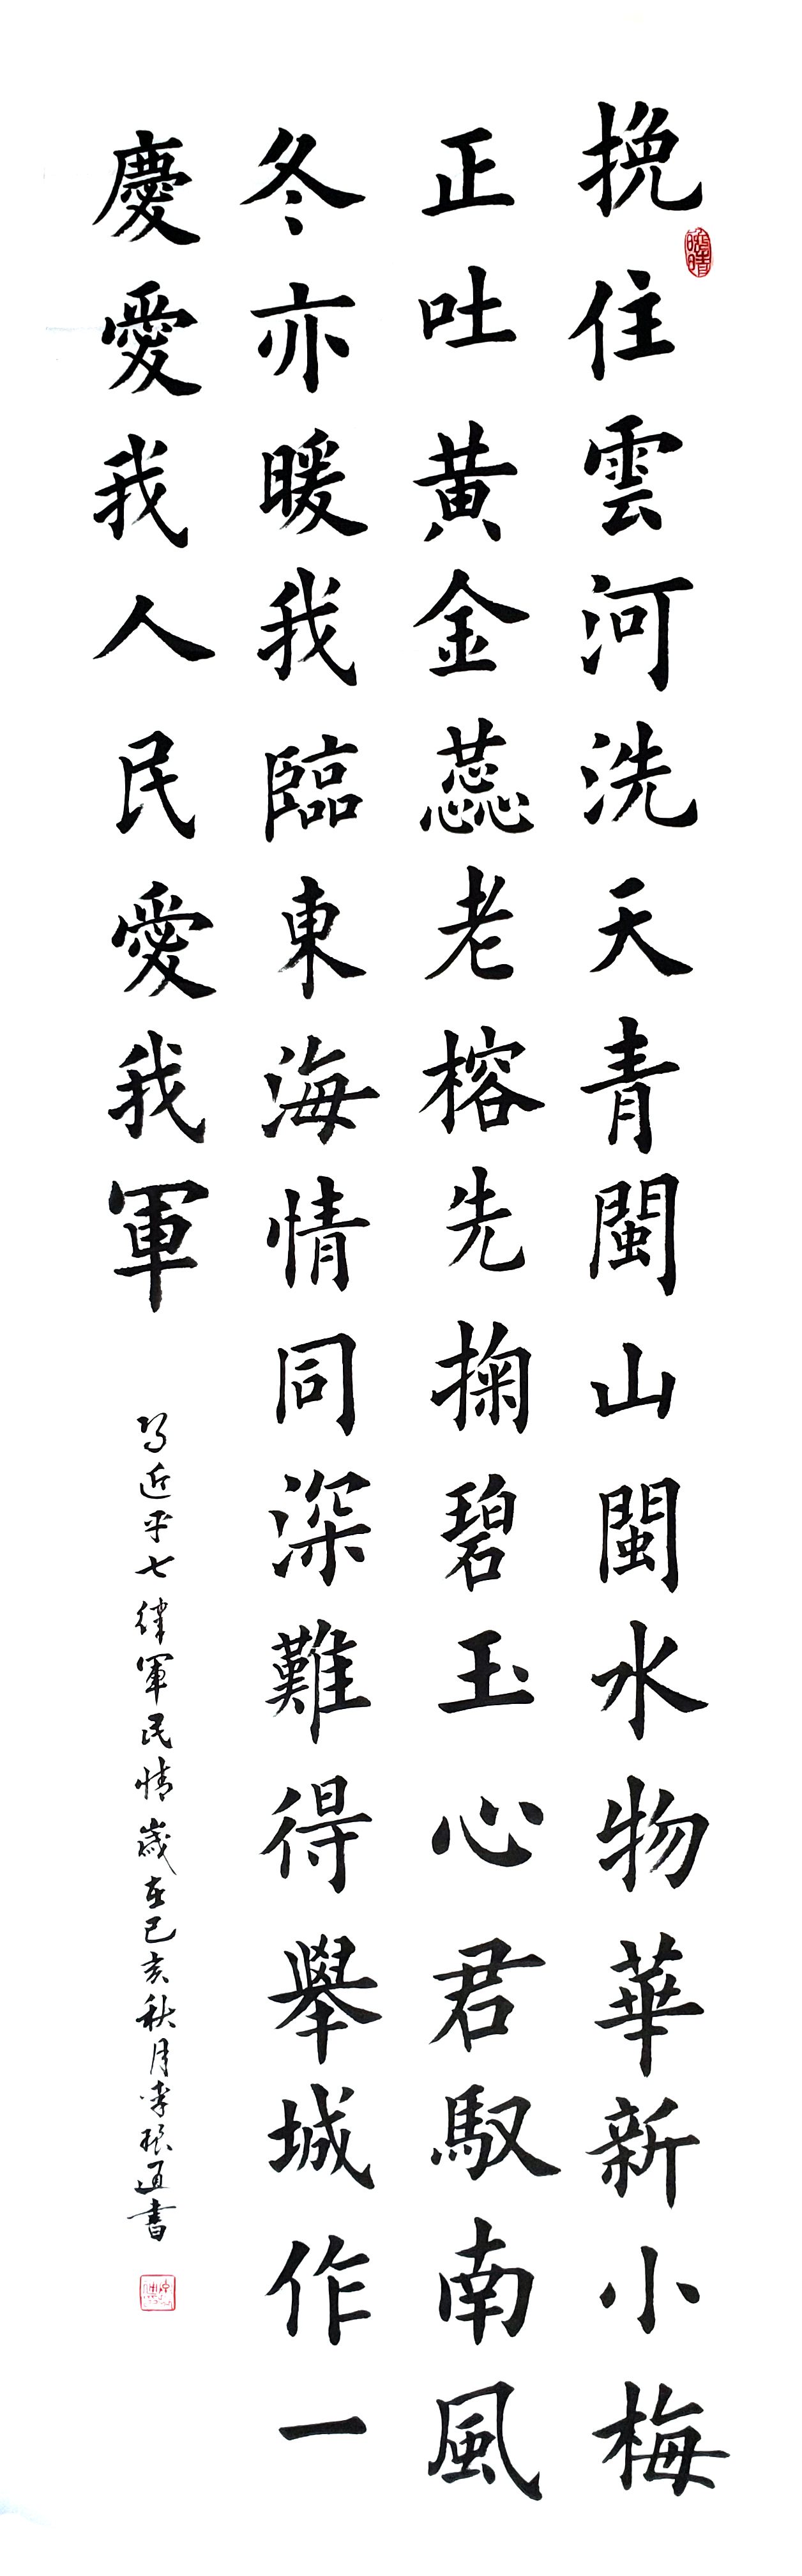 挽住雲河洗天青閩山閩水物華新小梅
正吐黄金蕊老榕先掬碧玉心君馭南風
冬亦暖我臨東海情同深難得舉城作一
慶愛我人民愛我軍
习近平七律軍民情歲在己亥秋月李通書
晚晴